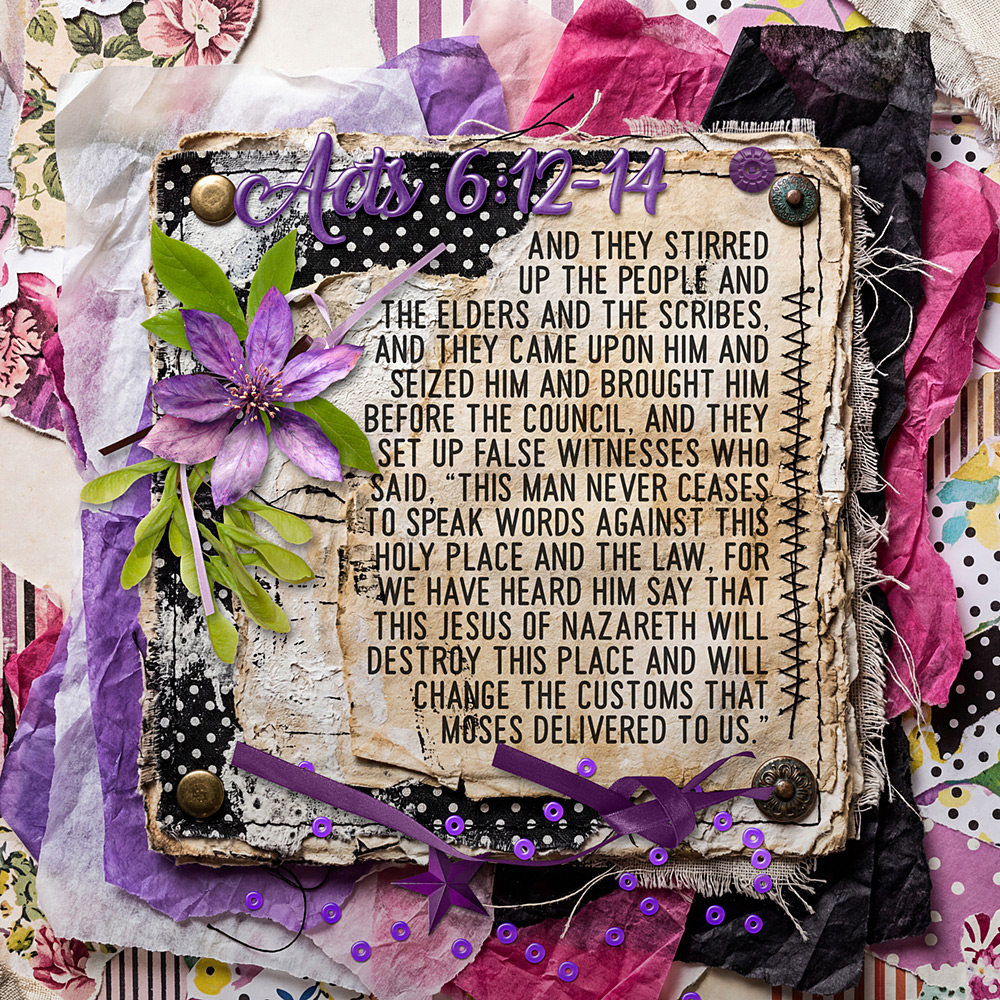 Acts 6:12-14
AND THEY STIRRED
UP THE PEOPLE AND
THE ELDERS AND THE SCRIBES,
AND THEY CAME UPON HIM AND
SEIZED HIM AND BROUGHT HIM
BEFORE THE COUNCIL, AND THEY
SET UP FALSE WITNESSES WHO
SAID, “THIS MAN NEVER CEASES
TO SPEAK WORDS AGAINST THIS
HOLY PLACE AND THE LAW, FOR
WE HAVE HEARD HIM SAY THAT
THIS JESUS OF NAZARETH WILL
DESTROY THIS PLACE AND WILL
CHANGE THE CUSTOMS THAT
MOSES DELIVERED TO US.”